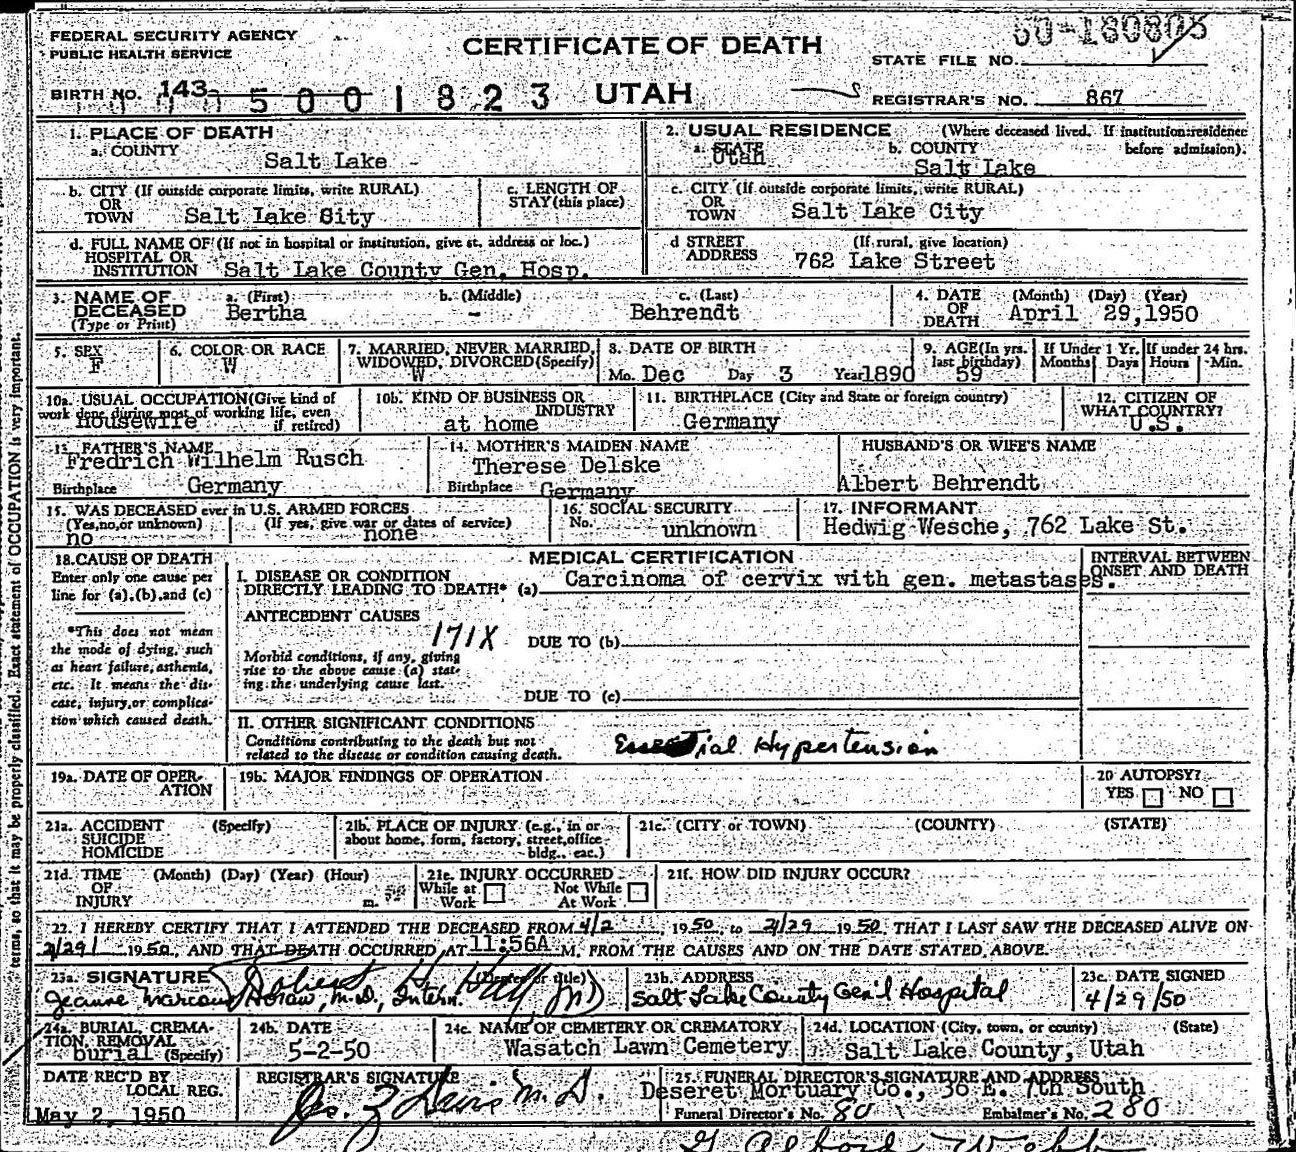 FEDERAL SECURITY AGENCY
PUBLIC HEALTH SERVICE
CERTIFICATE OF DEATH
60-180805
STATE FILE NO.
BIRTH NO. 143
5001823
UTAH
REGISTRAR'S NO. 867
1. PLACE OF DEATH
a. COUNTY
Salt Lake
2. USUAL RESIDENCE (Where deceased lived. If institution: residence before admission).
a. STATE
Utah
b. COUNTY
Salt Lake
b. CITY (If outside corporate limits, write RURAL)
OR
TOWN Salt Lake Sity
c. LENGTH OF
STAY (this place)
c. CITY (If outside corporate limits, write RURAL)
OR
TOWN Salt Lake City
d. FULL NAME OF (If not in hospital or institution, give st. address or loc.)
HOSPITAL OR
INSTITUTION Salt Lake County Gen. Hosp.
d STREET (If rural, give location)
ADDRESS 762 Lake Street
3. NAME OF DECEASED
(Type or Print)
a. (First)
Bertha
b. (Middle)
-
c. (Last)
Behrendt
4. DATE OF DEATH (Month) (Day) (Year)
April 29,1950
5. SEX
F
6. COLOR OR RACE
W
7. MARRIED, NEVER MARRIED,
WIDOWED, DIVORCED (Specify)
W
8. DATE OF BIRTH
Mo. Dec Day 3 Year 1890
9. AGE (In yrs. last birthday)
59
If Under 1 Yr.
Months Days
If under 24 hrs.
Hours Min.
10a. USUAL OCCUPATION (Give kind of
work done during most of working life, even
if retired)
housewife
10b. KIND OF BUSINESS OR
INDUSTRY
at home
11. BIRTHPLACE (City and State or foreign country)
Germany
12. CITIZEN OF
WHAT COUNTRY?
U.S.
13. FATHER'S NAME
Fredrich Wilhelm Rusch
Birthplace Germany
14. MOTHER'S MAIDEN NAME
Therese Delske
Birthplace Germany
HUSBAND'S OR WIFE'S NAME
Albert Behrendt
15. WAS DECEASED ever in U.S. ARMED FORCES
(Yes, no, or unknown) (If yes, give war or dates of service)
no none
16. SOCIAL SECURITY
No. unknown
17. INFORMANT
Hedwig Wesche, 762 Lake St.
18. CAUSE OF DEATH
Enter only one cause per
line for (a), (b), and (c)
*This does not mean
the mode of dying, such
as heart failure, asthenia,
etc. It means the dis-
ease, injury, or complica-
tion which caused death.
MEDICAL CERTIFICATION
INTERVAL BETWEEN
ONSET AND DEATH
I. DISEASE OR CONDITION
DIRECTLY LEADING TO DEATH* (a) Carcinoma of cervix with gen. metastases.
ANTECEDENT CAUSES
171X
DUE TO (b)
Morbid conditions, if any, giving
rise to the above cause (a) stat-
ing the underlying cause last.
DUE TO (c)
II. OTHER SIGNIFICANT CONDITIONS
Conditions contributing to the death but not
related to the disease or condition causing death.
Essential Hypertension
19a. DATE OF OPER-
ATION
19b. MAJOR FINDINGS OF OPERATION
20 AUTOPSY?
YES NO
21a. ACCIDENT (Specify)
SUICIDE
HOMICIDE
21b. PLACE OF INJURY (e.g., in or
about home, form, factory, street, office
bldg., eac.)
21c. (CITY or TOWN) (COUNTY) (STATE)
21d. TIME (Month) (Day) (Year) (Hour)
OF
INJURY m.
21e. INJURY OCCURRED
While at Work Not While At Work
21f. HOW DID INJURY OCCUR?
22. I HEREBY CERTIFY THAT I ATTENDED THE DECEASED FROM 4/2, 1950, to 4/29 1950, THAT I LAST SAW THE DECEASED ALIVE ON
4/29/ 1950, AND THAT DEATH OCCURRED AT 11:56A M, FROM THE CAUSES AND ON THE DATE STATED ABOVE.
23a. SIGNATURE (Degree or title)
Jeanne M.D., Intern. Robert H. MD
23b. ADDRESS
Salt Lake County Gen'l Hospital
23c. DATE SIGNED
4/29/50
24a. BURIAL, CREMA-
TION, REMOVAL
burial (Specify)
24b. DATE
5-2-50
24c. NAME OF CEMETERY OR CREMATORY
Wasatch Lawn Cemetery
24d. LOCATION (City, town, or county) (State)
Salt Lake County, Utah
DATE REC'D BY
LOCAL REG.
May 2, 1950
REGISTRAR'S SIGNATURE
M.D.
25. FUNERAL DIRECTOR'S SIGNATURE AND ADDRESS
Deseret Mortuary Co., 36 E. 7th South
Funeral Director's No. 80 Embalmer's No. 280
terms, so that it may be properly classified. Exact statement of OCCUPATION is very important.